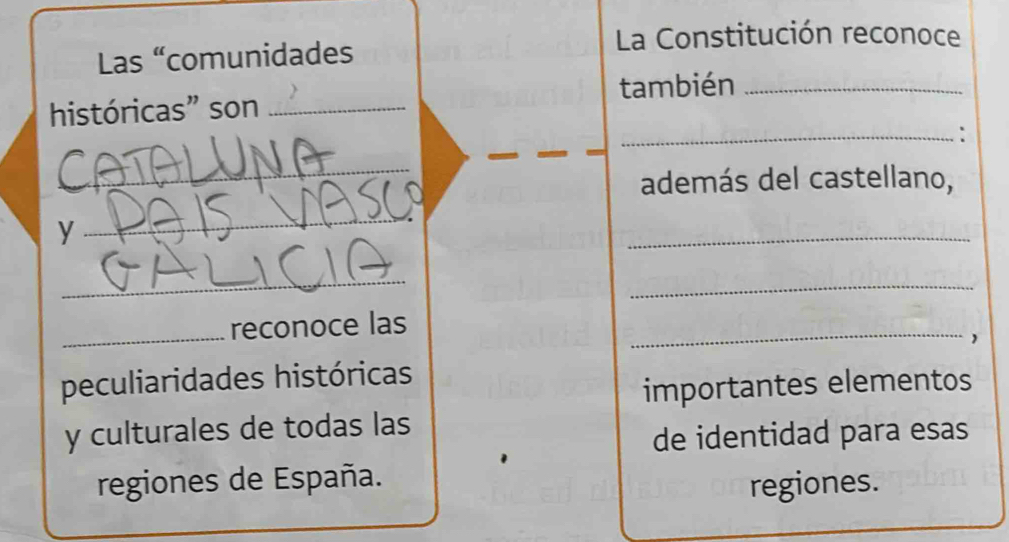 Las “comunidades
históricas” son
CATALUNA
y PAIS VASCO
GALICIA
reconoce las
peculiaridades históricas
y culturales de todas las
regiones de España.
La Constitución reconoce
también
:
además del castellano,
,
importantes elementos
de identidad para esas
regiones.